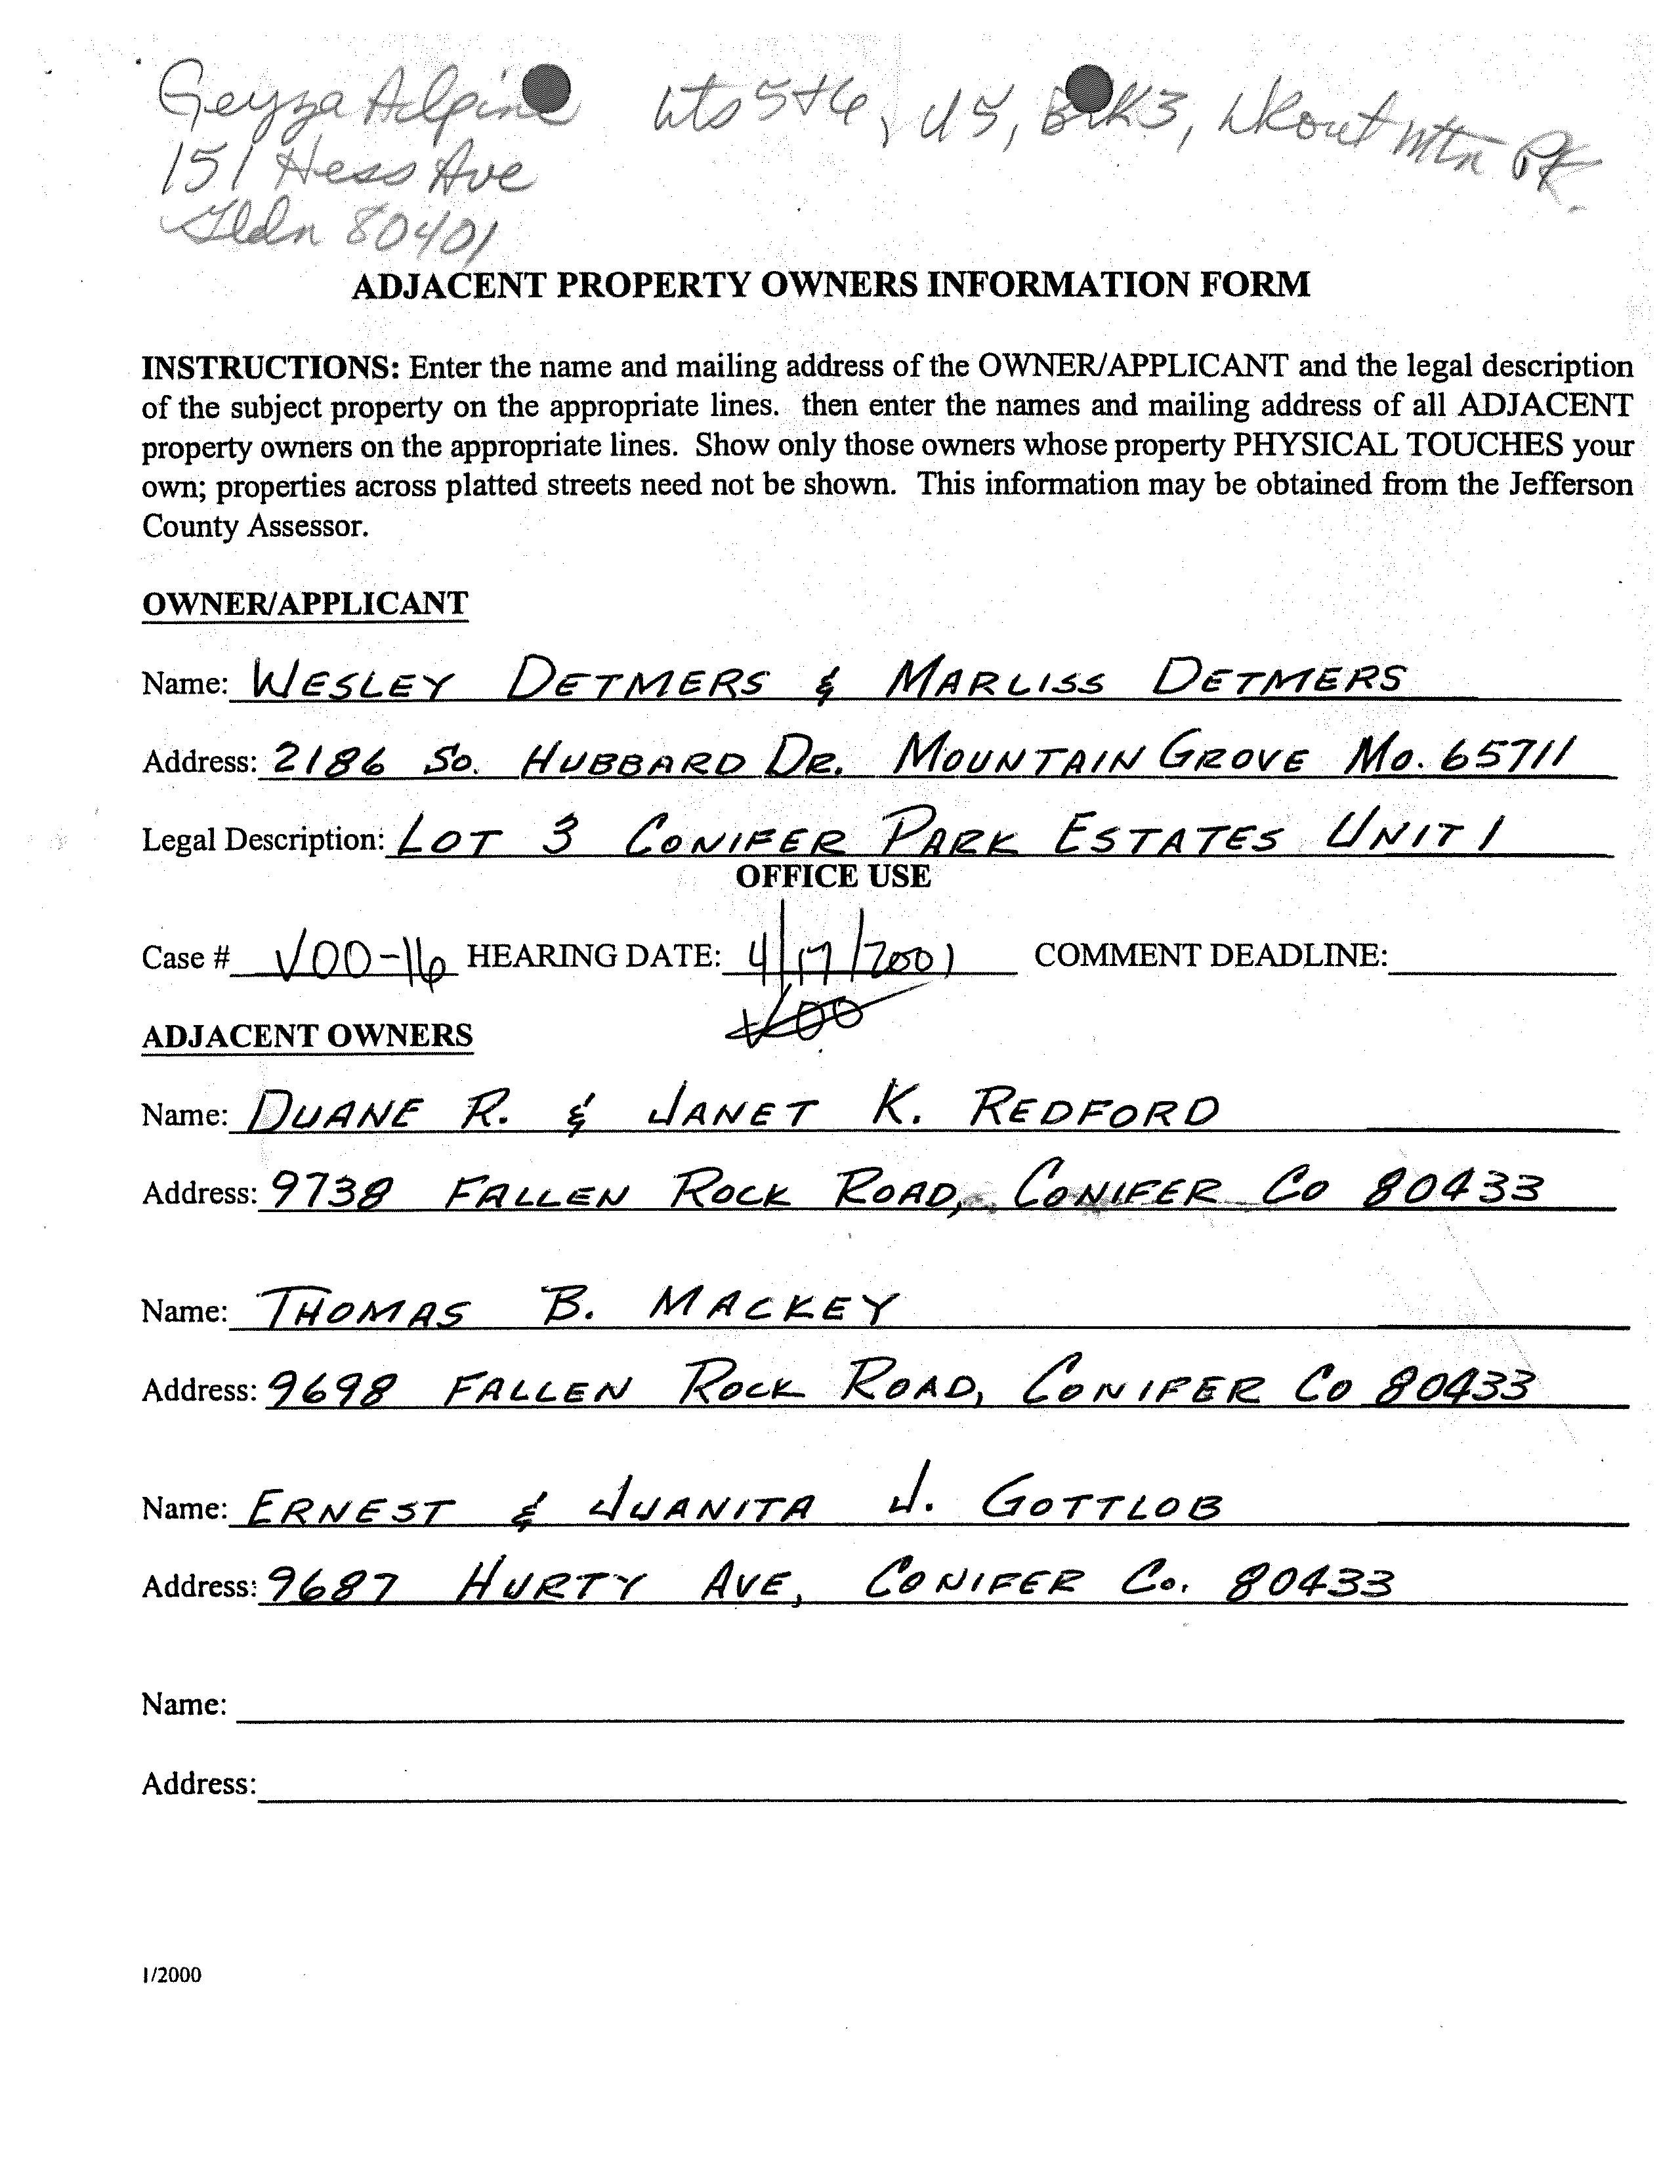 Geyza Alpine Lts 5+6, 45, Blk 3, Lkout Mtn Pk.
151 Hess Ave
Gldn 80401
ADJACENT PROPERTY OWNERS INFORMATION FORM
INSTRUCTIONS: Enter the name and mailing address of the OWNER/APPLICANT and the legal description
of the subject property on the appropriate lines. then enter the names and mailing address of all ADJACENT
property owners on the appropriate lines. Show only those owners whose property PHYSICAL TOUCHES your
own; properties across platted streets need not be shown. This information may be obtained from the Jefferson
County Assessor.
OWNER/APPLICANT
Name: WESLEY DETMERS & MARLISS DETMERS
Address: 2186 SO. HUBBARD DR. MOUNTAIN GROVE MO. 65711
Legal Description: LOT 3 CONIFER PARK ESTATES UNIT 1
OFFICE USE
Case # V00-16 HEARING DATE: 4/17/2001 COMMENT DEADLINE:
V00
ADJACENT OWNERS
Name: DUANE R. & JANET K. REDFORD
Address: 9738 FALLEN ROCK ROAD, CONIFER CO 80433
Name: THOMAS B. MACKEY
Address: 9698 FALLEN ROCK ROAD, CONIFER CO 80433
Name: ERNEST & JUANITA J. GOTTLOB
Address: 9687 HURTY AVE, CONIFER CO. 80433
Name:
Address:
1/2000